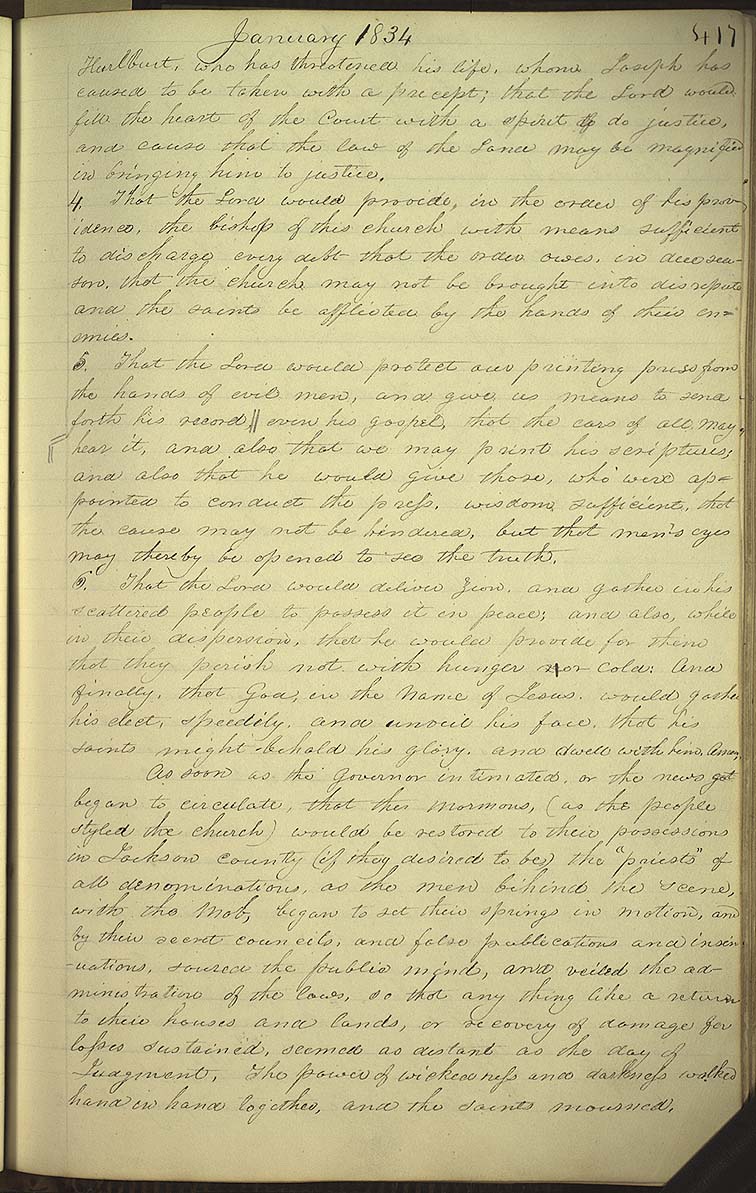 January 1834 417
Hurlburt, who has threatened his life, whom Joseph has
caused to be taken with a precept; that the Lord would
fill the heart of the Court with a spirit to do justice,
and cause that the law of the Land may be magnified
in bringing him to justice.
4. That the Lord would provide, in the order of his prov-
idence, the bishop of this church with means sufficient
to discharge every debt that the order owes, in due sea-
son, that the church may not be brought into disrepute
and the saints be afflicted by the hands of their en=
emies.
5. That the Lord would protect our printing press from
the hands of evil men, and give us means to send
forth his record, || even his gospel, that the ears of all may
|| hear it, and also that we may print his scriptures;
and also that he would give those, who were ap=
pointed to conduct the press, wisdom sufficient, that
the cause may not be hindered, but that men's eyes
may thereby be opened to see the truth.
6. That the Lord would deliver Zion, and gather in his
scattered people to possess it in peace; and also, while
in their dispersion, that he would provide for them
that they perish not with hunger nor cold: And
finally, that God, in the name of Jesus, would gather
his elect, speedily, and unveil his face, that his
saints might behold his glory, and dwell with him. Amen.
As soon as the Governor intimated, or the news got
began to circulate, that the Mormons, (as the people
styled the church) would be restored to their possessions
in Jackson county (if they desired to be) the "priests" of
all denominations, as the men behind the scene,
with the Mob, began to set their springs in motion, and
by their secret councils, and false publications and insin-
-uations, soured the public mind, and veiled the ad-
ministration of the laws, so that any thing like a return
to their houses and lands, or recovery of damage for
losses sustained, seemed as distant as the day of
Judgment. The power of wickedness and darkness walked
hand in hand together, and the saints mourned.